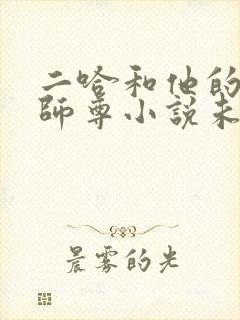 二哈和他的
師尊小說未
晨雾的光